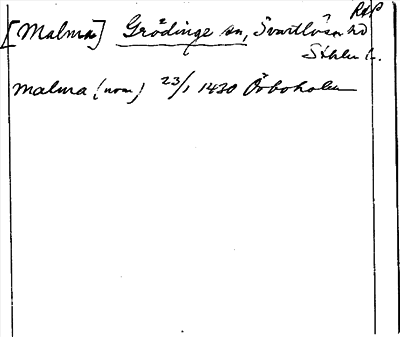 RAP
[Malma] Grödinge sn, Svartlösa hd
Sthlm l.
Malma (nom) 23/1 1430 Örboholm